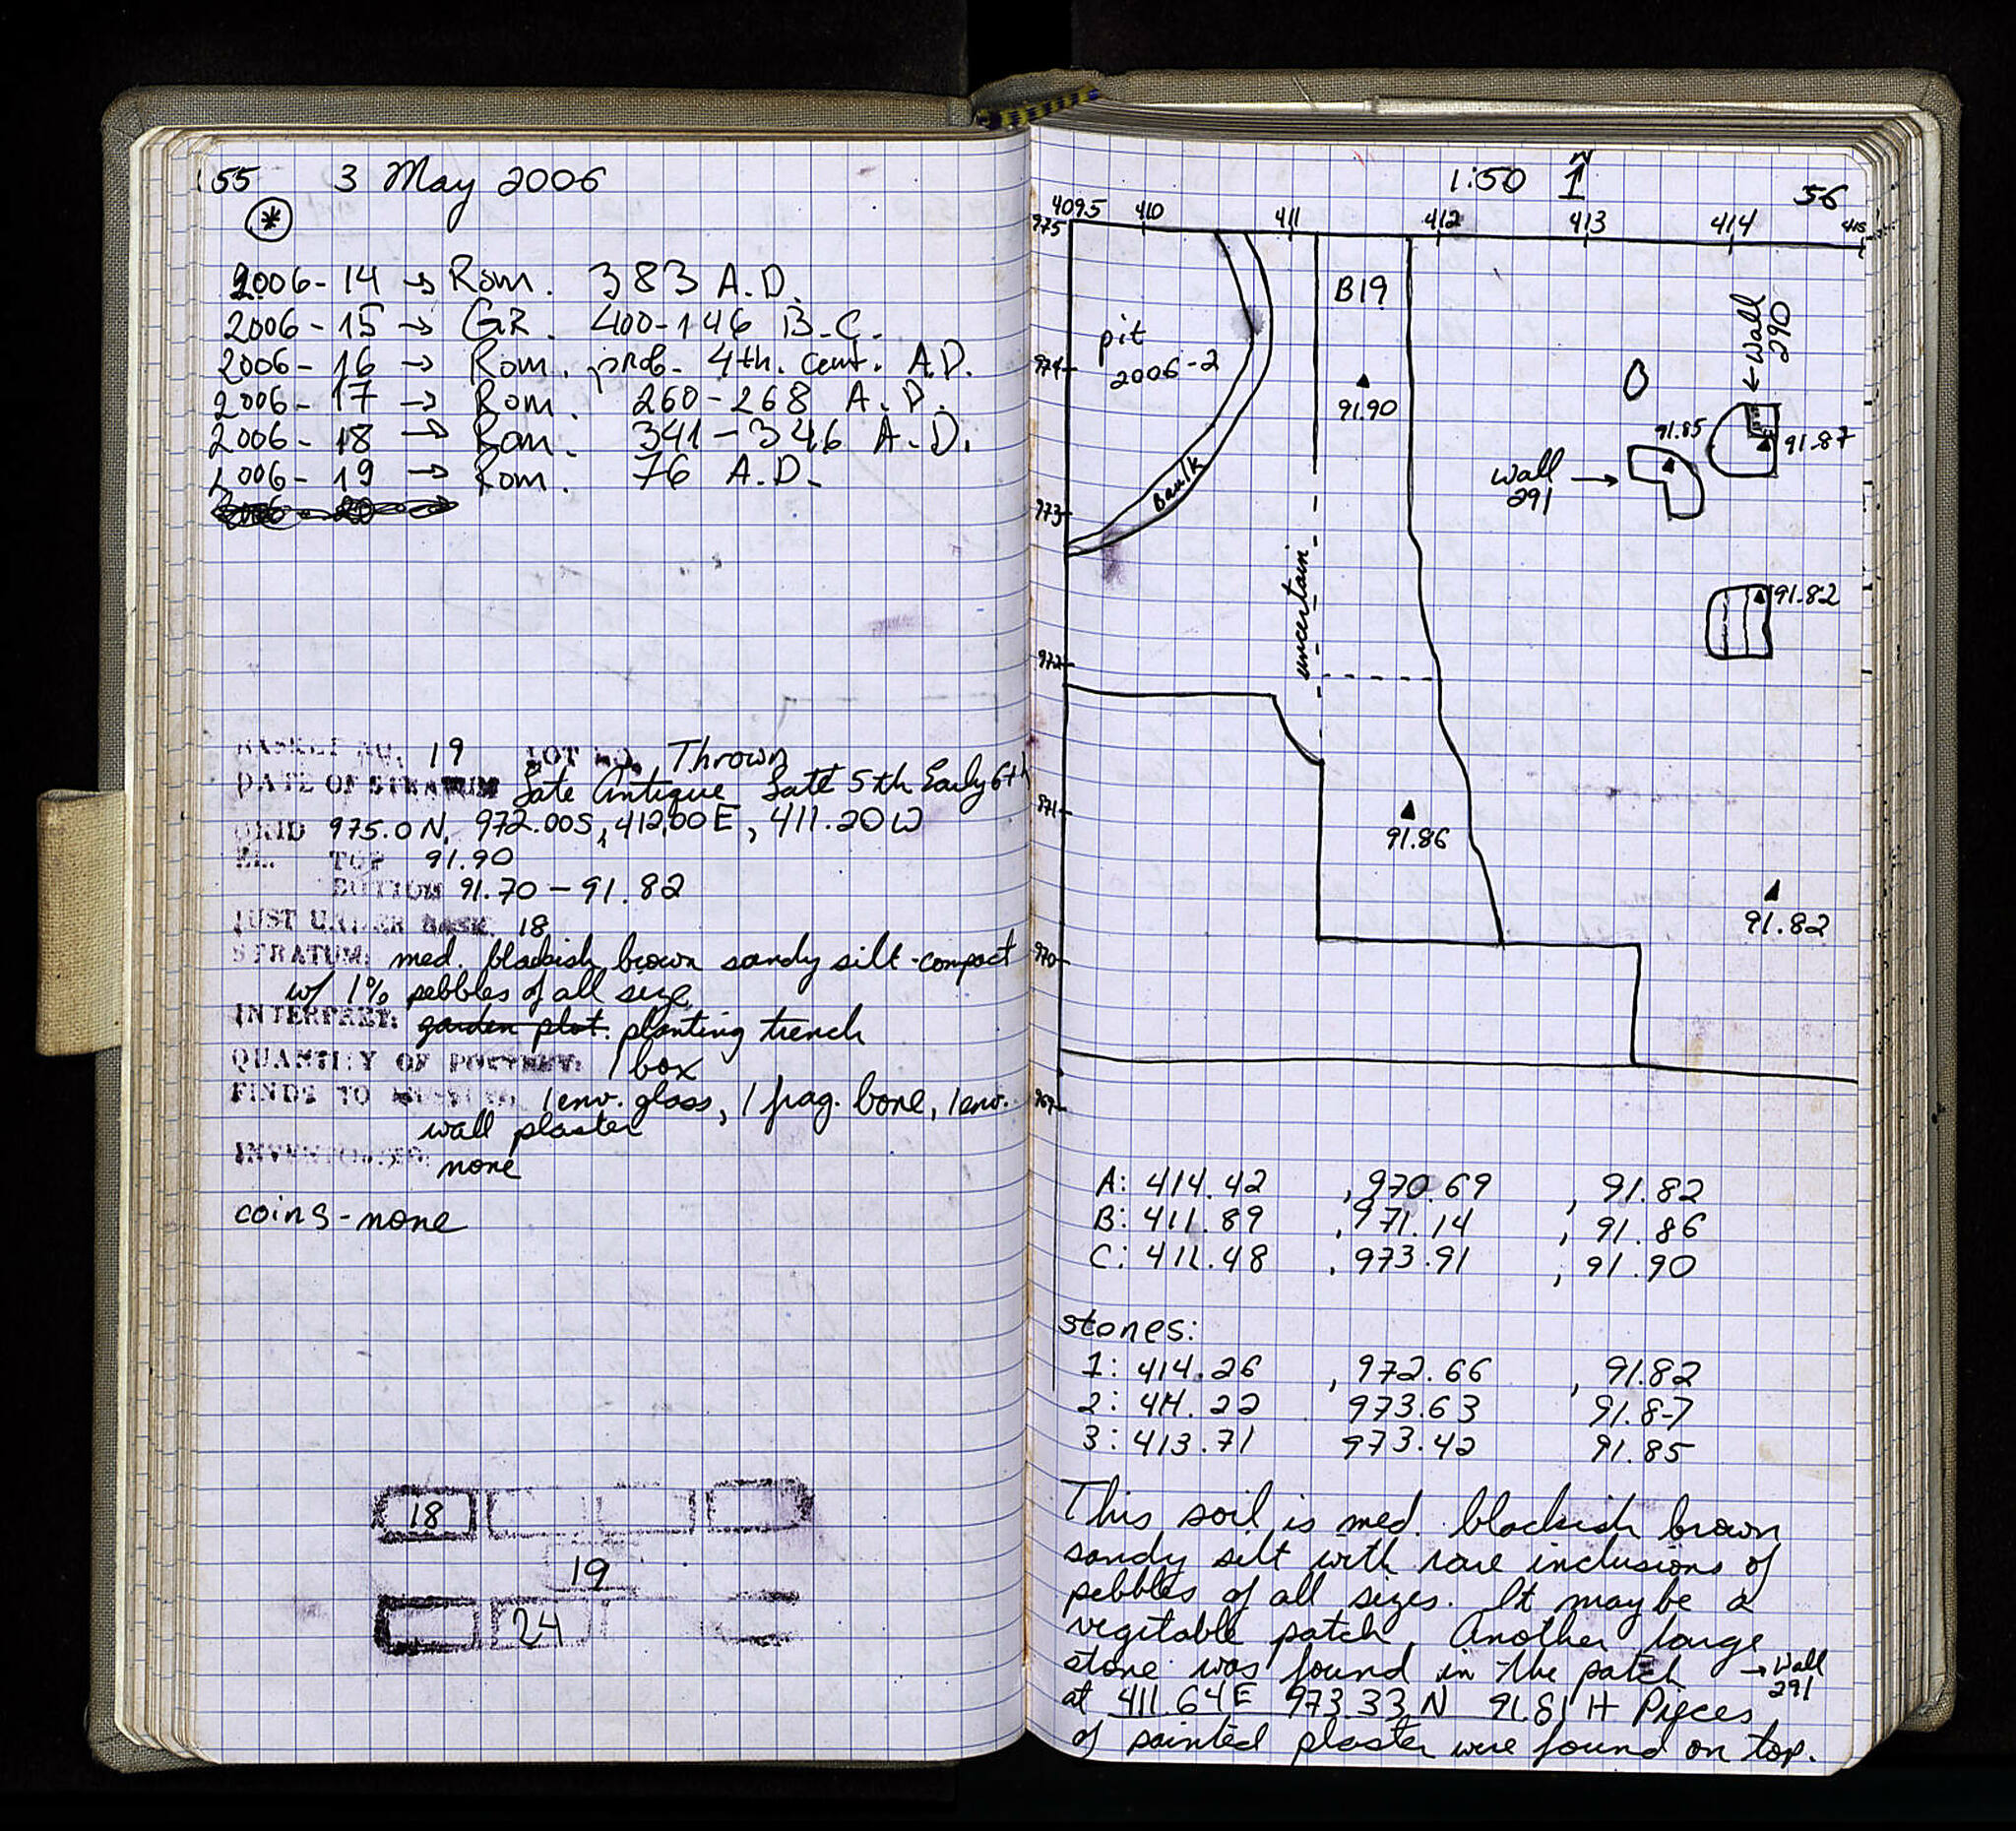 55 3 May 2006
*
2006-14 → Rom. 383 A.D.
2006-15 → GR. 400-146 B.C.
2006-16 → Rom. prob. 4th. cent. A.D.
2006-17 → Rom. 260-268 A.D.
2006-18 → Rom. 341-346 A.D.
2006-19 → Rom. 76 A.D.
BASKET NO. 19 LOT NO. Thrown
DATE OF STRATUM Late Antique Late 5th Early 6th
GRID 975.0N, 972.00S, 412.00E, 411.20W
EL. TOP 91.90
BOTTOM 91.70 - 91.82
JUST UNDER BASK. 18
STRATUM: med. blackish brown sandy silt - compact
w/ 1% pebbles of all size
INTERPRET: garden plot. planting trench
QUANTITY OF POTTERY: 1 box
FINDS TO MUSEUM: 1 env. glass, 1 frag. bone, 1 env.
wall plaster
INVENTORIED: none
coins - none
18
19
24
1:50 N 56
409.5 410 411 412 413 414 415
975
B19
Wall
290
pit
2006-2
974
91.90
91.85
91.87
Wall
291
Baulk
973
uncertain
91.82
972
971
91.86
91.82
970
969
A: 414.42 , 970.69 , 91.82
B: 411.89 , 971.14 , 91.86
C: 411.48 , 973.91 , 91.90
stones:
1: 414.26 , 972.66 , 91.82
2: 414.22 973.63 91.87
3: 413.71 973.42 91.85
This soil is med. blackish brown
sandy silt with rare inclusions of
pebbles of all sizes. It may be a
vegitable patch. Another large
stone was found in the patch → Wall
291
at 411.64E 973.33N 91.81H Pieces
of painted plaster were found on top.